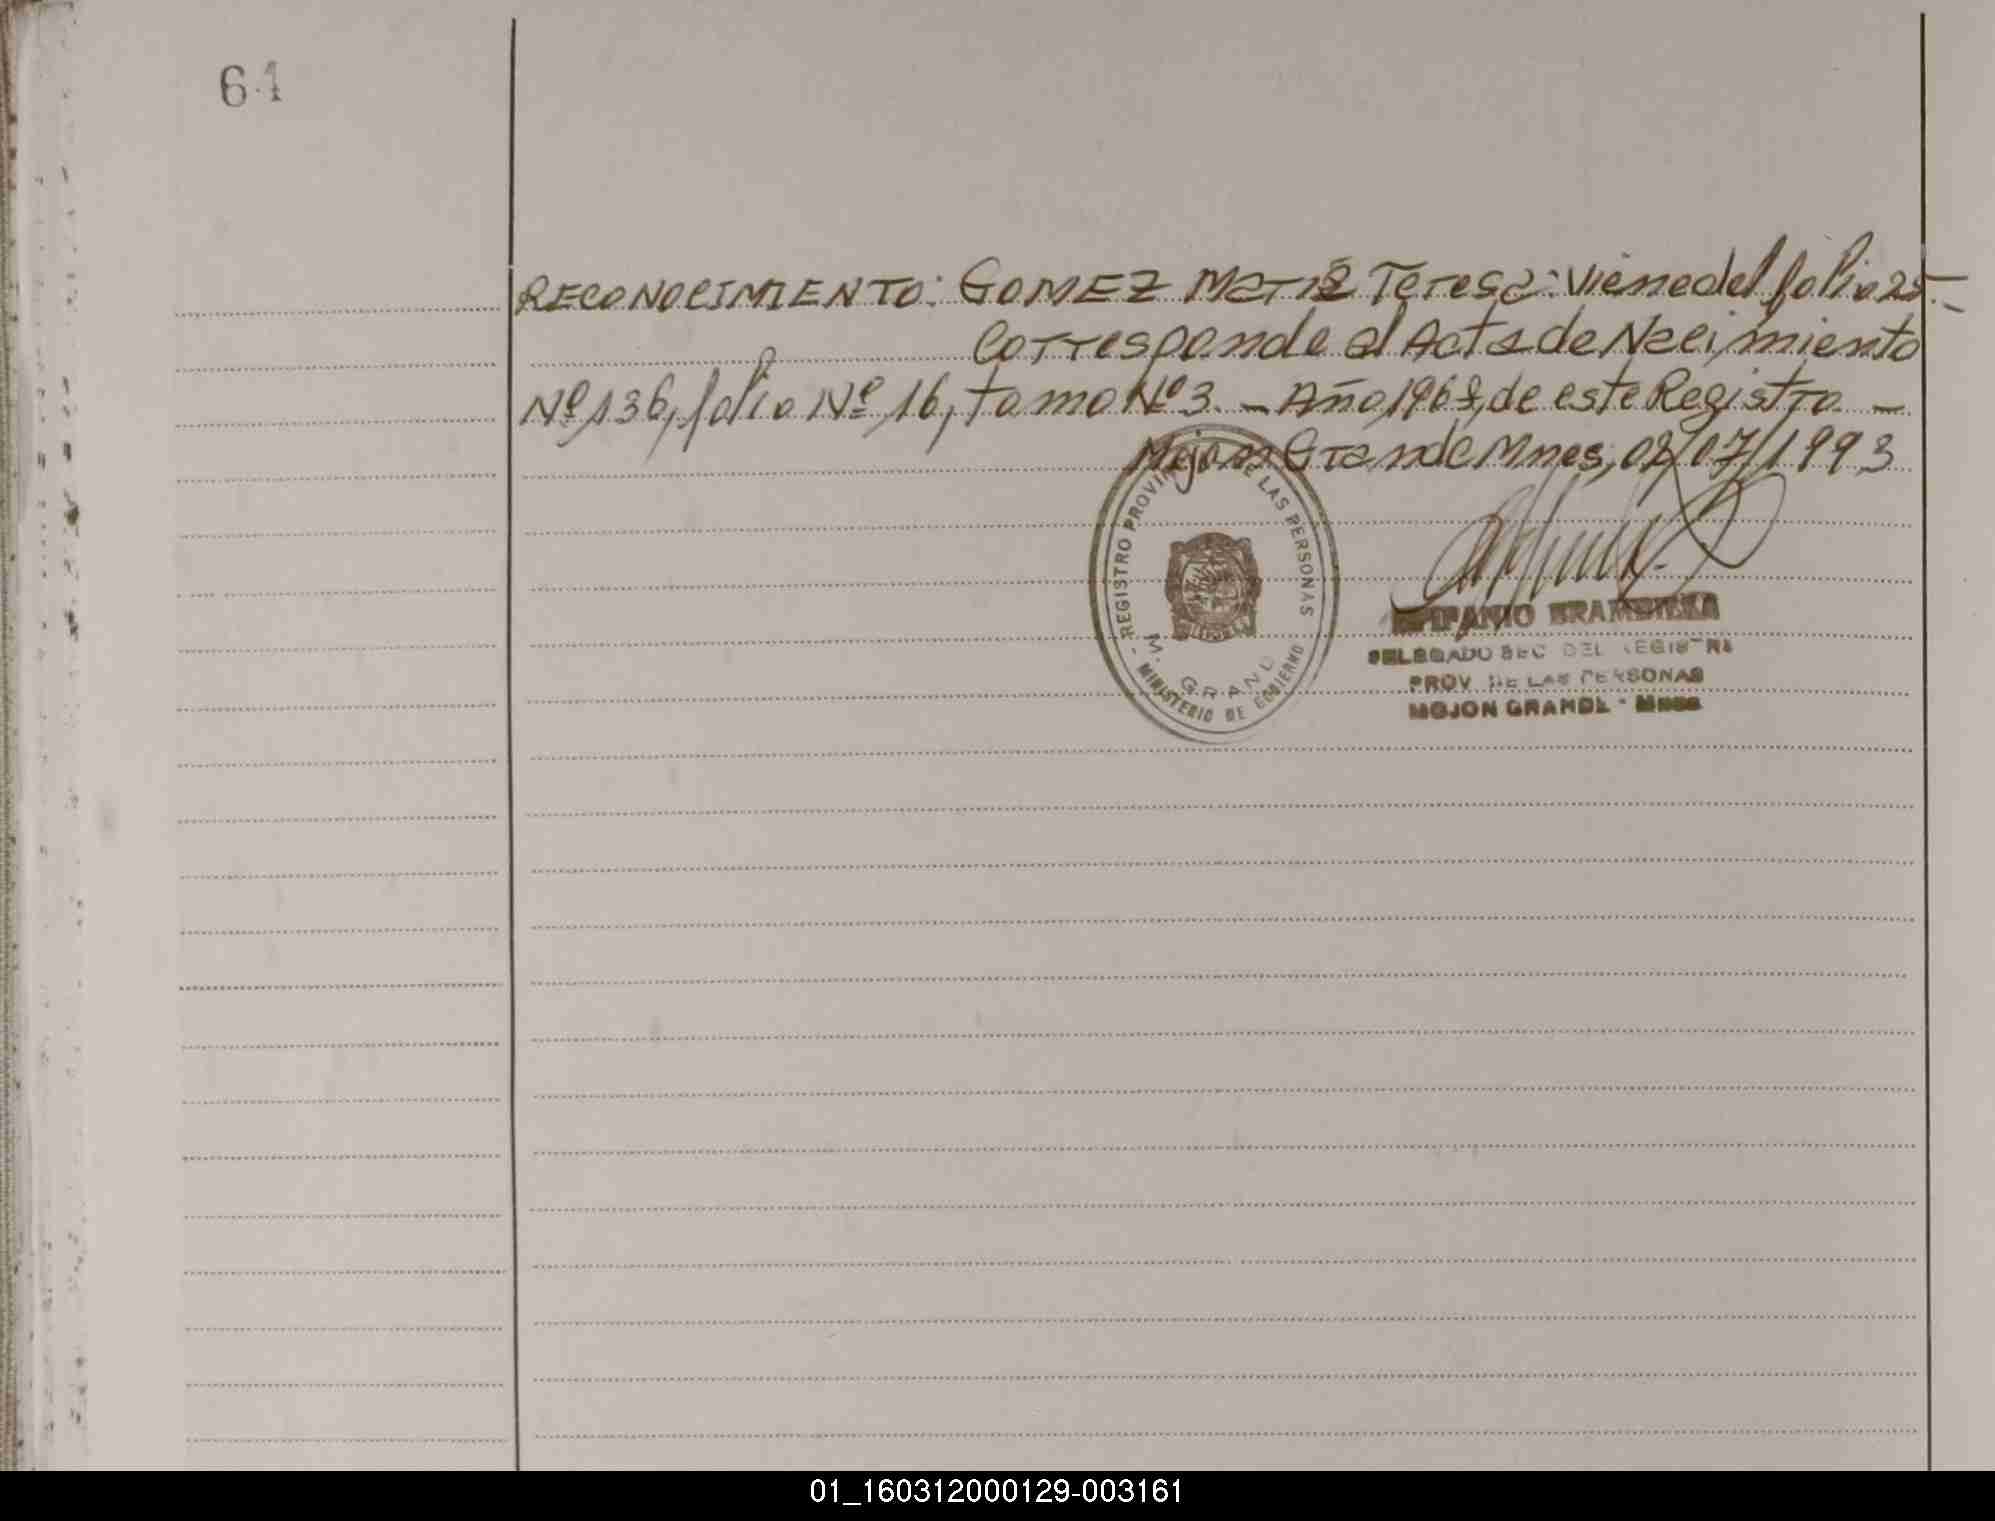 64
RECONOCIMIENTO: GOMEZ Maria Teresa: Viene del folio 25.-
Corresponde al Acta de Nacimiento
Nº 136, folio Nº 16, tomo Nº 3. - Año 1968, de este Registro. -
Mojon Grande Mnes, 02/07/1993
REGISTRO PROVINCIAL DE LAS PERSONAS
M. GRANDE
- MINISTERIO DE GOBIERNO
EPIFANIO BRAMBILLA
DELEGADO SEC. DEL REGISTRO
PROV. DE LAS PERSONAS
MOJON GRANDE - Mnes
01_160312000129-003161